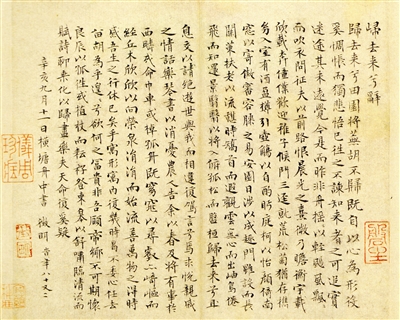 歸去來兮辭
歸去來兮田園將蕪胡不歸既自以心為形役
奚惆悵而獨悲悟已往之不諫知来者之可追實
迷途其未遠覺今是而昨非舟摇摇以輕颺風飄飄
而吹衣問征夫以前路恨晨光之熹微乃瞻衡宇載
欣載奔僮僕歡迎稚子候門三逕就荒松菊猶存携
幼入室有酒盈樽引壺觴以自酌眄庭柯以怡顏倚南
窓以寄傲審容膝之易安園日涉以成趣門雖設而長
關策扶老以流憩時矯首而遐觀雲無心而出岫鳥倦
飛而知還景翳翳以將入撫孤松而盤桓歸去來兮請
息交以絕遊世與我而相違復駕言兮焉求悅親戚
之情話樂琴書以消憂農人告余以春及將有事於
西疇或命巾車或棹孤舟既窈窕以尋壑亦崎嶇而
經丘木欣欣以向榮泉涓涓而始流善萬物之得時
感吾生之行休已矣乎寓形宇內復幾時曷不委心任去
留胡為乎遑遑欲何之富貴非吾願帝鄉不可期懷
良辰以孤往或植杖而耘耔登東皋以舒嘯臨清流而
賦詩聊乘化以歸盡樂夫天命復奚疑
辛亥九月十一日橫塘舟中書 徵明 時年八十又二